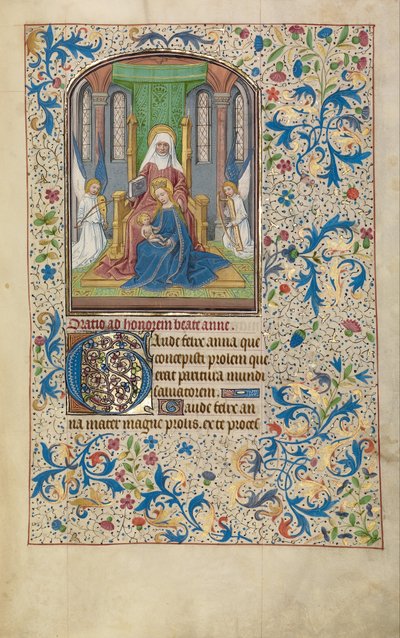 Oratio ad honorem beate anne.
Gaude felix anna que
concepisti prolem que
erat paritura mundi
saluatorem.
Gaude felix an
na mater magne prolis. ex te proces